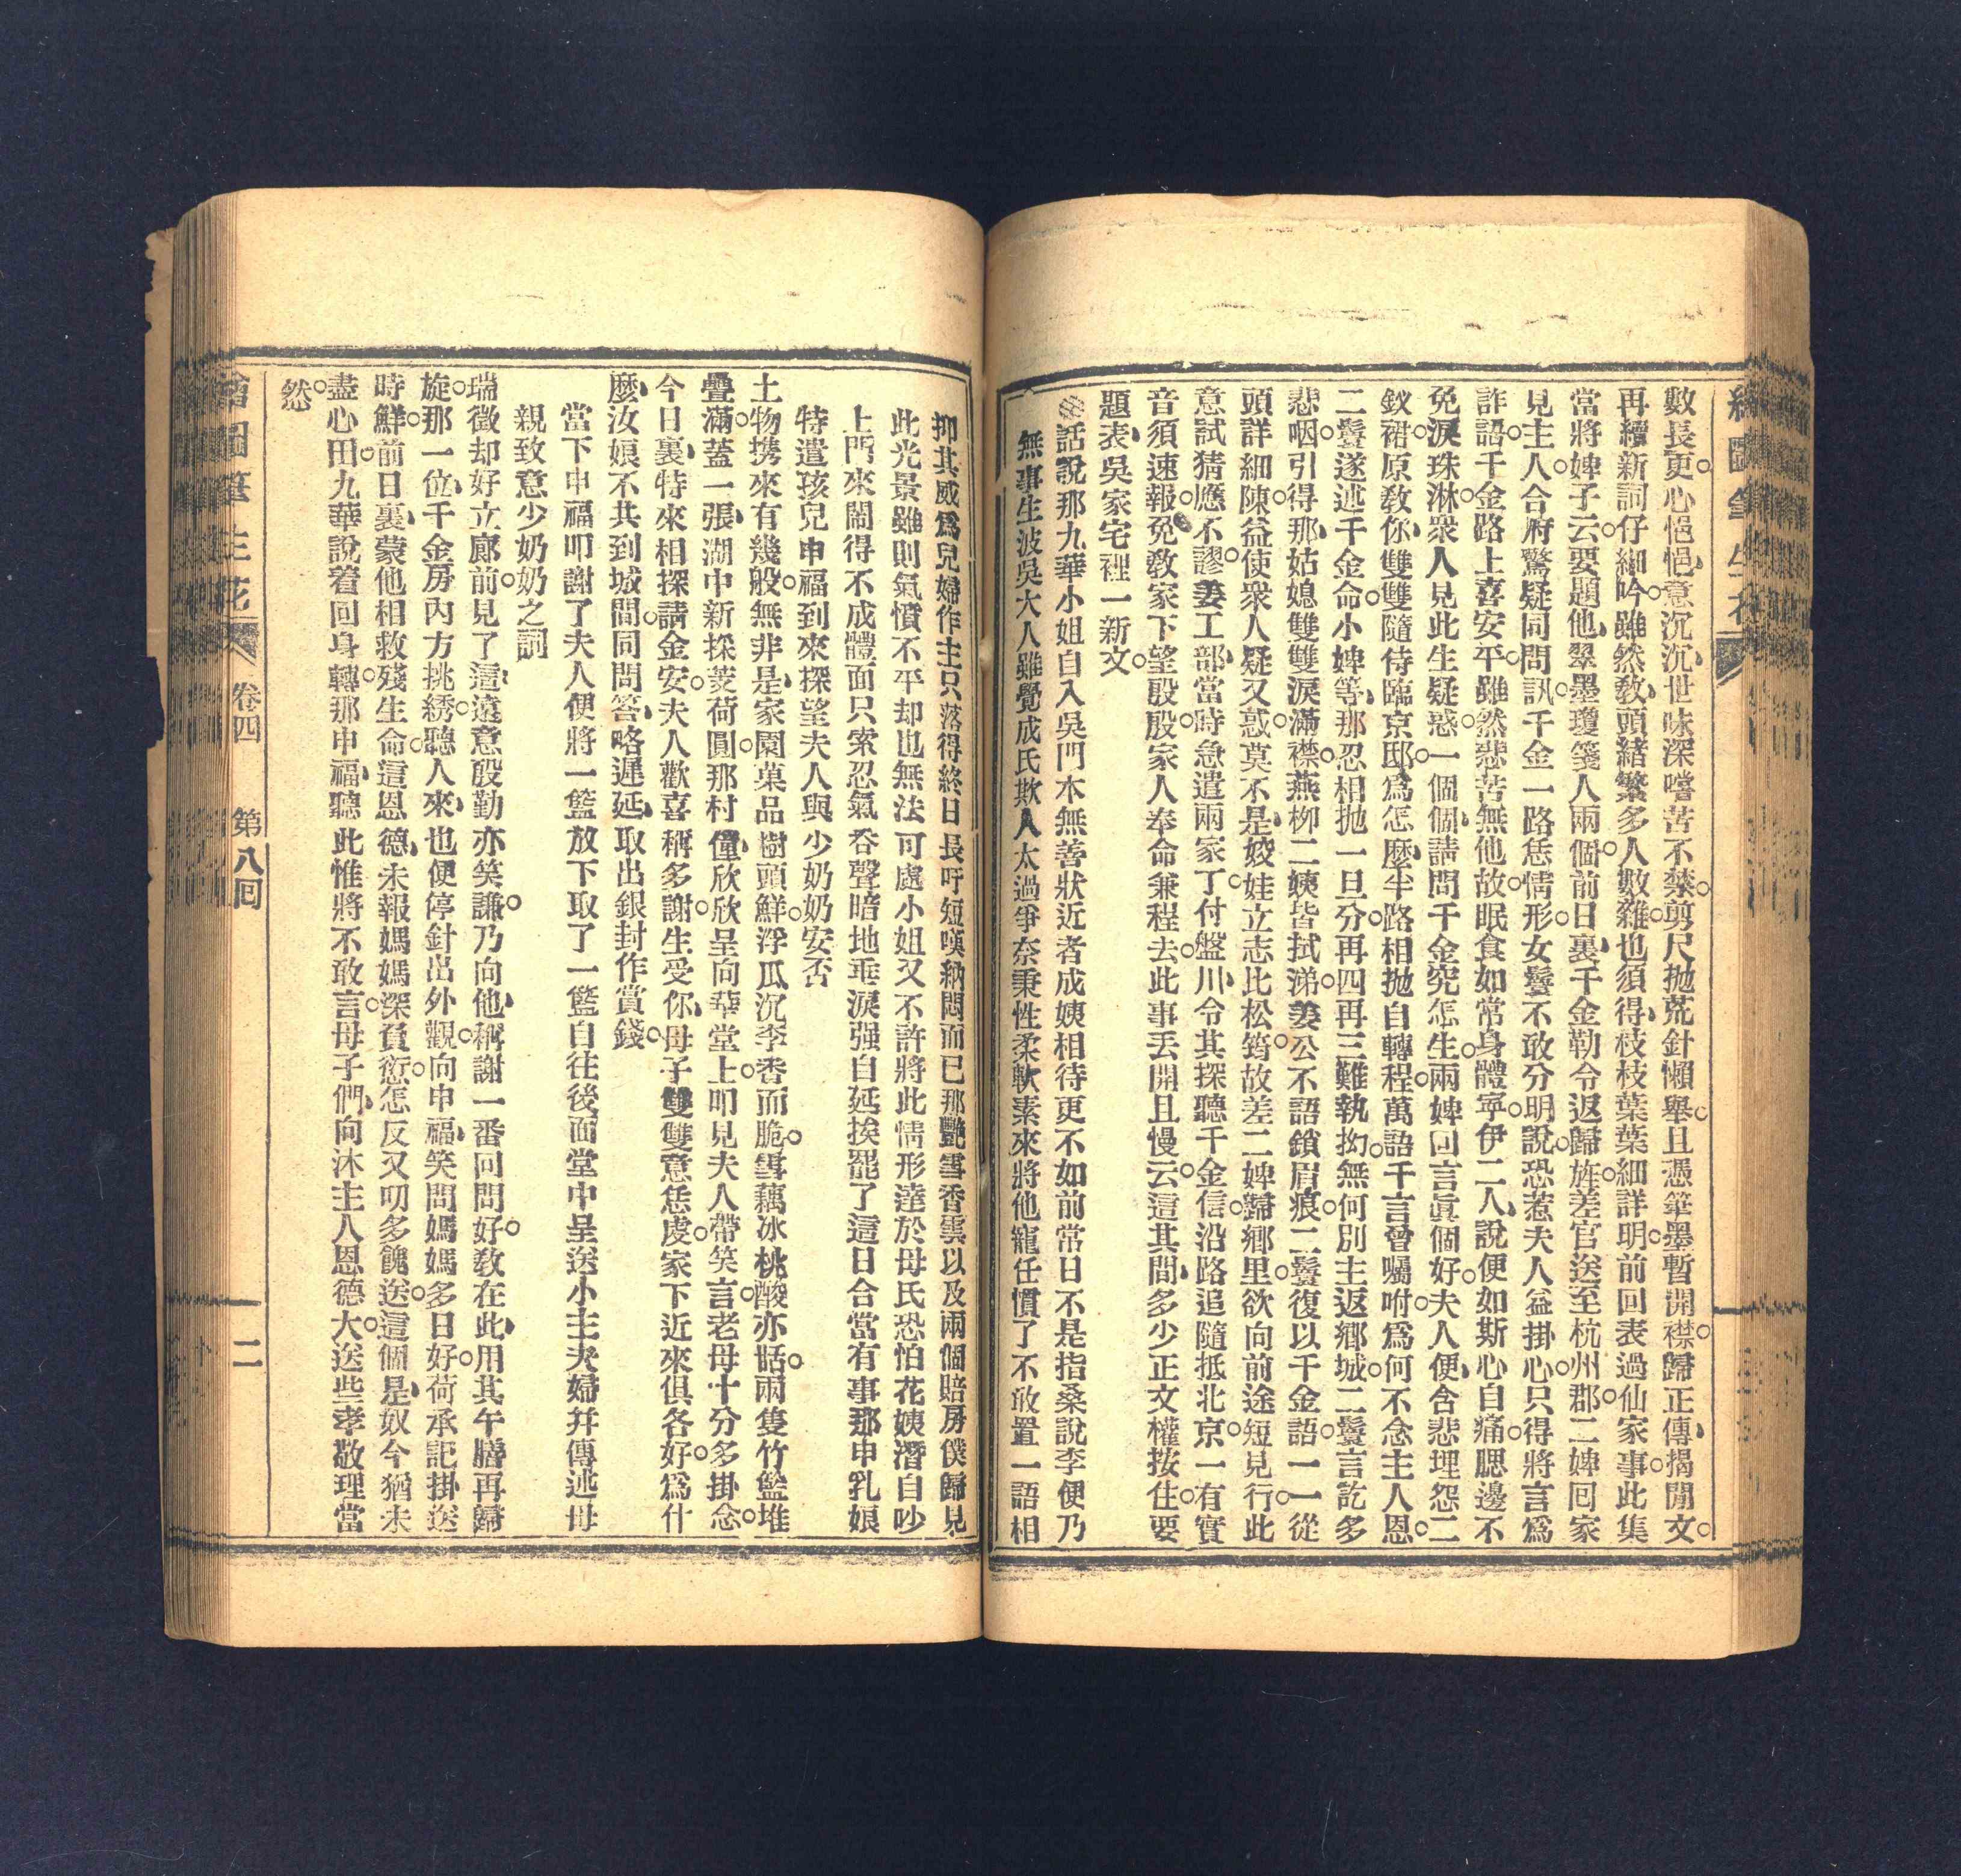 數長更。心悒悒、意沉沉、世味深嚐苦不禁。剪尺拋荒針懶舉。且憑筆墨暫開襟。歸正傳、揭閒文。
再續新詞仔細吟。雖然敎、頭緒繁多人數雜。也須得、枝枝葉葉細詳明。前回表過仙家事。此集
當將婢子云。要題他、翠墨瓊箋人兩個。前日裏、千金勒令返歸旌。差官送至杭州郡。二婢回家
見主人。合府驚疑同問訊。千金一路恁情形。女鬟不敢分明說。恐惹夫人益掛心。只得將言爲
詐語。千金路上喜安平。雖然悲苦無他故。眠食如常身體寧。伊二人、說便如斯心自痛。腮邊不
免淚珠淋。衆人見此生疑惑。一個個、請問千金究怎生。兩婢回言眞個好。夫人便、含悲埋怨二
釵裙。原敎你、雙雙隨侍臨京邸。爲怎麼、半路相拋自轉程。萬語千言曾囑咐。爲何不念主人恩。
二鬟遂述千金命。小婢等、那忍相拋一旦分。再四再三難執拗。無何別主返鄉城。二鬟言訖多
悲咽。引得那、姑媳雙雙淚滿襟。燕柳二姨皆拭涕。姜公不語鎖眉痕。二鬟復以千金語。一一從
頭詳細陳。益使衆人疑又惑。莫不是、姣娃立志比松筠。故差二婢歸鄉里。欲向前途短見行。此
意試猜應不謬。姜工部、當時急遣兩家丁。付盤川、令其探聽千金信。沿路追隨抵北京。一有實
音須速報。免敎家下望殷殷。家人奉命兼程去。此事丟開且慢云。這其間、多少正文權按住。要
題表、吳家宅裡一新文。
話說那九華小姐自入吳門本無善狀近者成姨相待更不如前常日不是指桑說李便乃
無事生波吳大人雖覺成氏欺人太過爭奈秉性柔軟素來將他寵任慣了不敢置一語相
抑其威爲兒婦作主只落得終日長吁短嘆納悶而已那艷雪香雲以及兩個賠房僕歸見
此光景雖則氣憤不平却也無法可處小姐又不許將此情形達於母氏恐怕花姨潛自吵
上門來鬧得不成體面只索忍氣吞聲暗地垂淚强自延挨罷了這日合當有事那申乳娘
特遣孩兒申福到來探望夫人與少奶奶安否
土物携來有幾般。無非是、家園菓品樹頭鮮。浮瓜沉李香而脆。雪藕冰桃酸亦甜。兩隻竹籃堆
疊滿。蓋一張、湖中新採菱荷圓。那村僮、欣欣呈向華堂上。叩見夫人帶笑言。老母十分多掛念。
今日裏、特來相探請金安。夫人歡喜稱多謝。生受你、母子雙雙意恁虔。家下近來俱各好。爲什
麼、汝娘不共到城間。同問答、略遲延。取出銀封作賞錢。
當下申福叩謝了夫人便將一籃放下取了一籃自往後面堂中呈送小主夫婦幷傳述母
親致意少奶奶之詞
瑞徵却好立廊前。見了這、遠意殷勤亦笑謙。乃向他、稱謝一番回問好。敎在此、用其午膳再歸
旋。那一位、千金房內方挑綉。聽人來、也便停針出外觀。向申福、笑問媽媽多日好。荷承記掛送
時鮮。前日裏、蒙他相救殘生命。這恩德、未報媽媽深負愆。怎反又叨多餽送。這個是、奴今猶未
盡心田。九華說着回身轉。那申福、聽此惟將不敢言。母子們、向沐主人恩德大。送些孝敬理當
然。
卷四 第八回 二